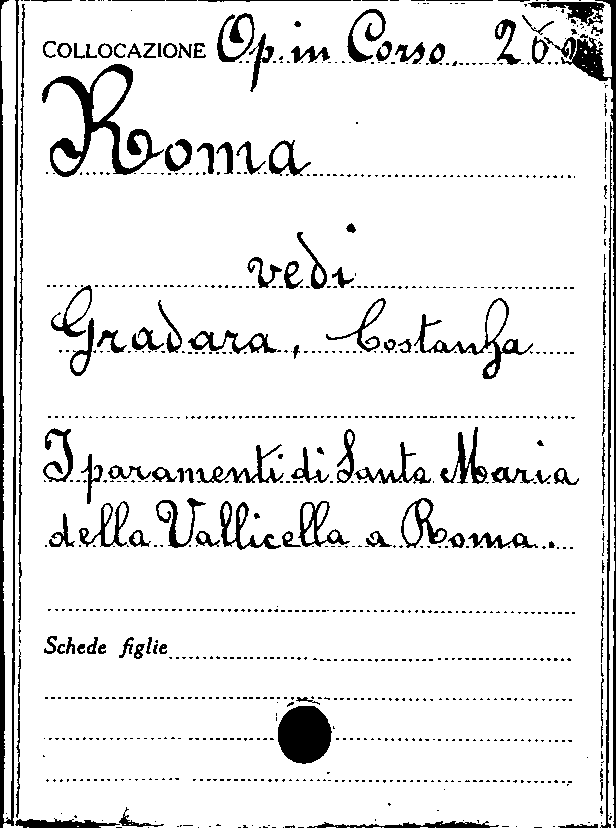 COLLOCAZIONE Op. in Corso.
Roma
vedi
Gradara, Costanza
I paramenti di Santa Maria
della Vallicella a Roma.
Schede figlie